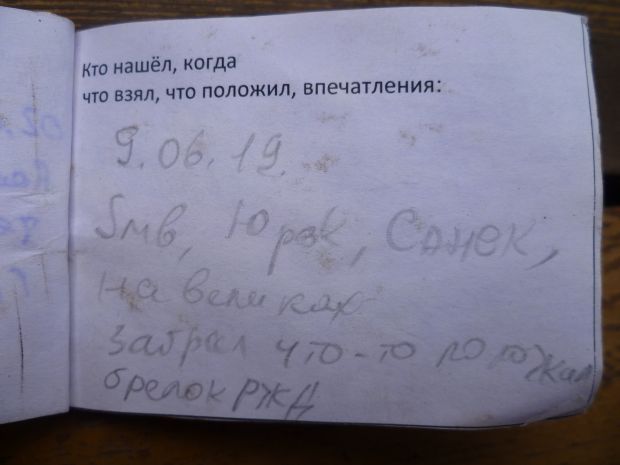 Кто нашёл, когда
что взял, что положил, впечатления:
9.06.19.
Smв, Юрок, Санек,
На великах
Забрал что-то положил
брелок РЖД